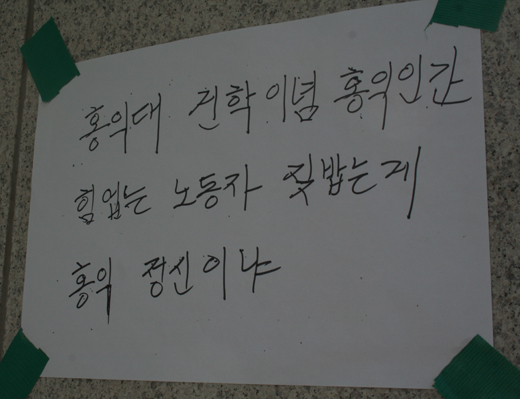 홍익대 건학이념 홍익인간
힘없는 노동자 짓밟는게
홍익 정신이냐